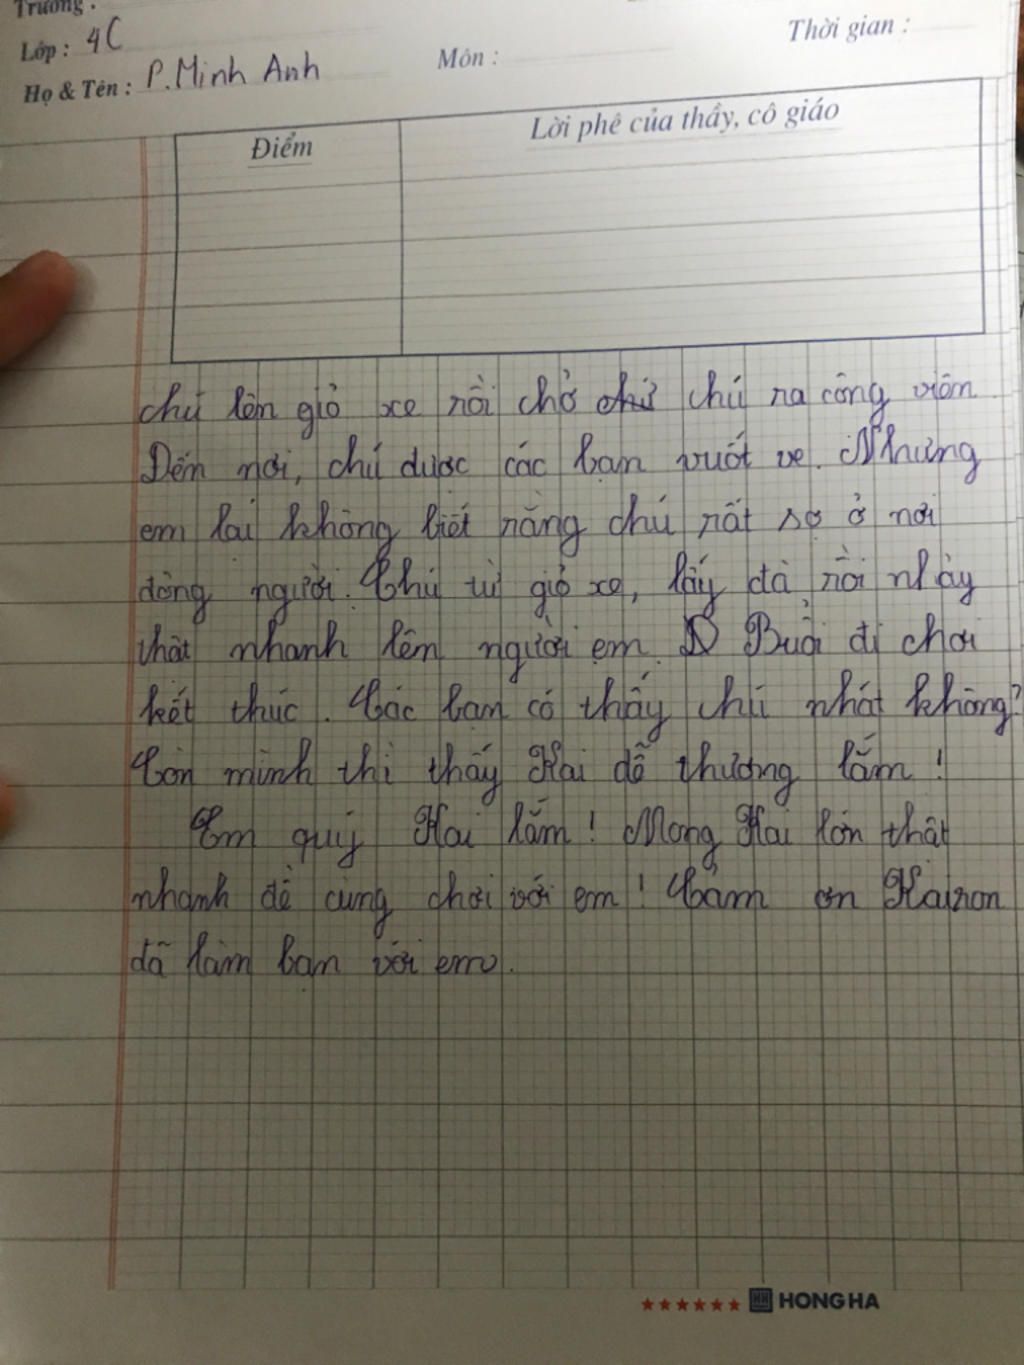 Trường :
Lớp : 4C
Họ & Tên : P. Minh Anh
Môn :
Thời gian :
Điểm
Lời phê của thầy, cô giáo
chú lên giỏ xe rồi chở chú ra công viên.
Đến nơi, chú được các bạn vuốt ve. Nhưng
em lại không biết rằng chú rất sợ ở nơi
đông người. Chú từ giỏ xe, lấy đà rồi nhảy
thật nhanh lên người em. Buổi đi chơi
kết thúc. Các bạn có thấy chú nhát không?
Còn mình thì thấy Kai dễ thương lắm!
Em quý Kai lắm! Mong Kai lớn thật
nhanh để cùng chơi với em! Cảm ơn Kairon
đã làm bạn với em.
HONG HA